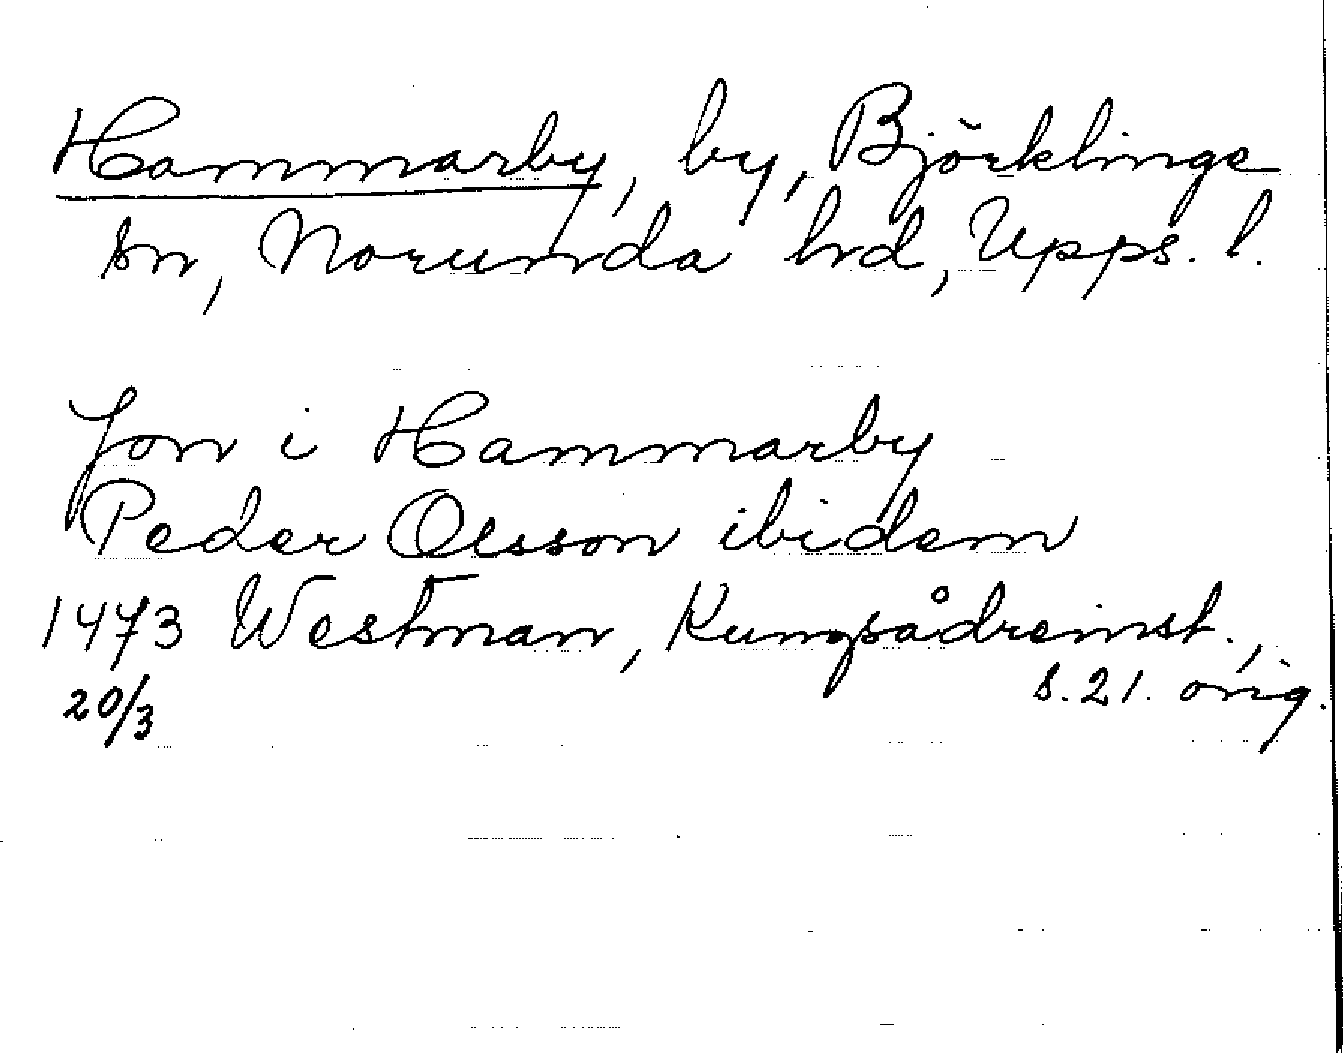 Hammarby, by, Björklinge
sn, Norunda hrd, Upps. l.
Jon i Hammarby
Peder Olsson ibidem
1473 Westman, Kungsådreinst.,
20/3 s. 21. orig.